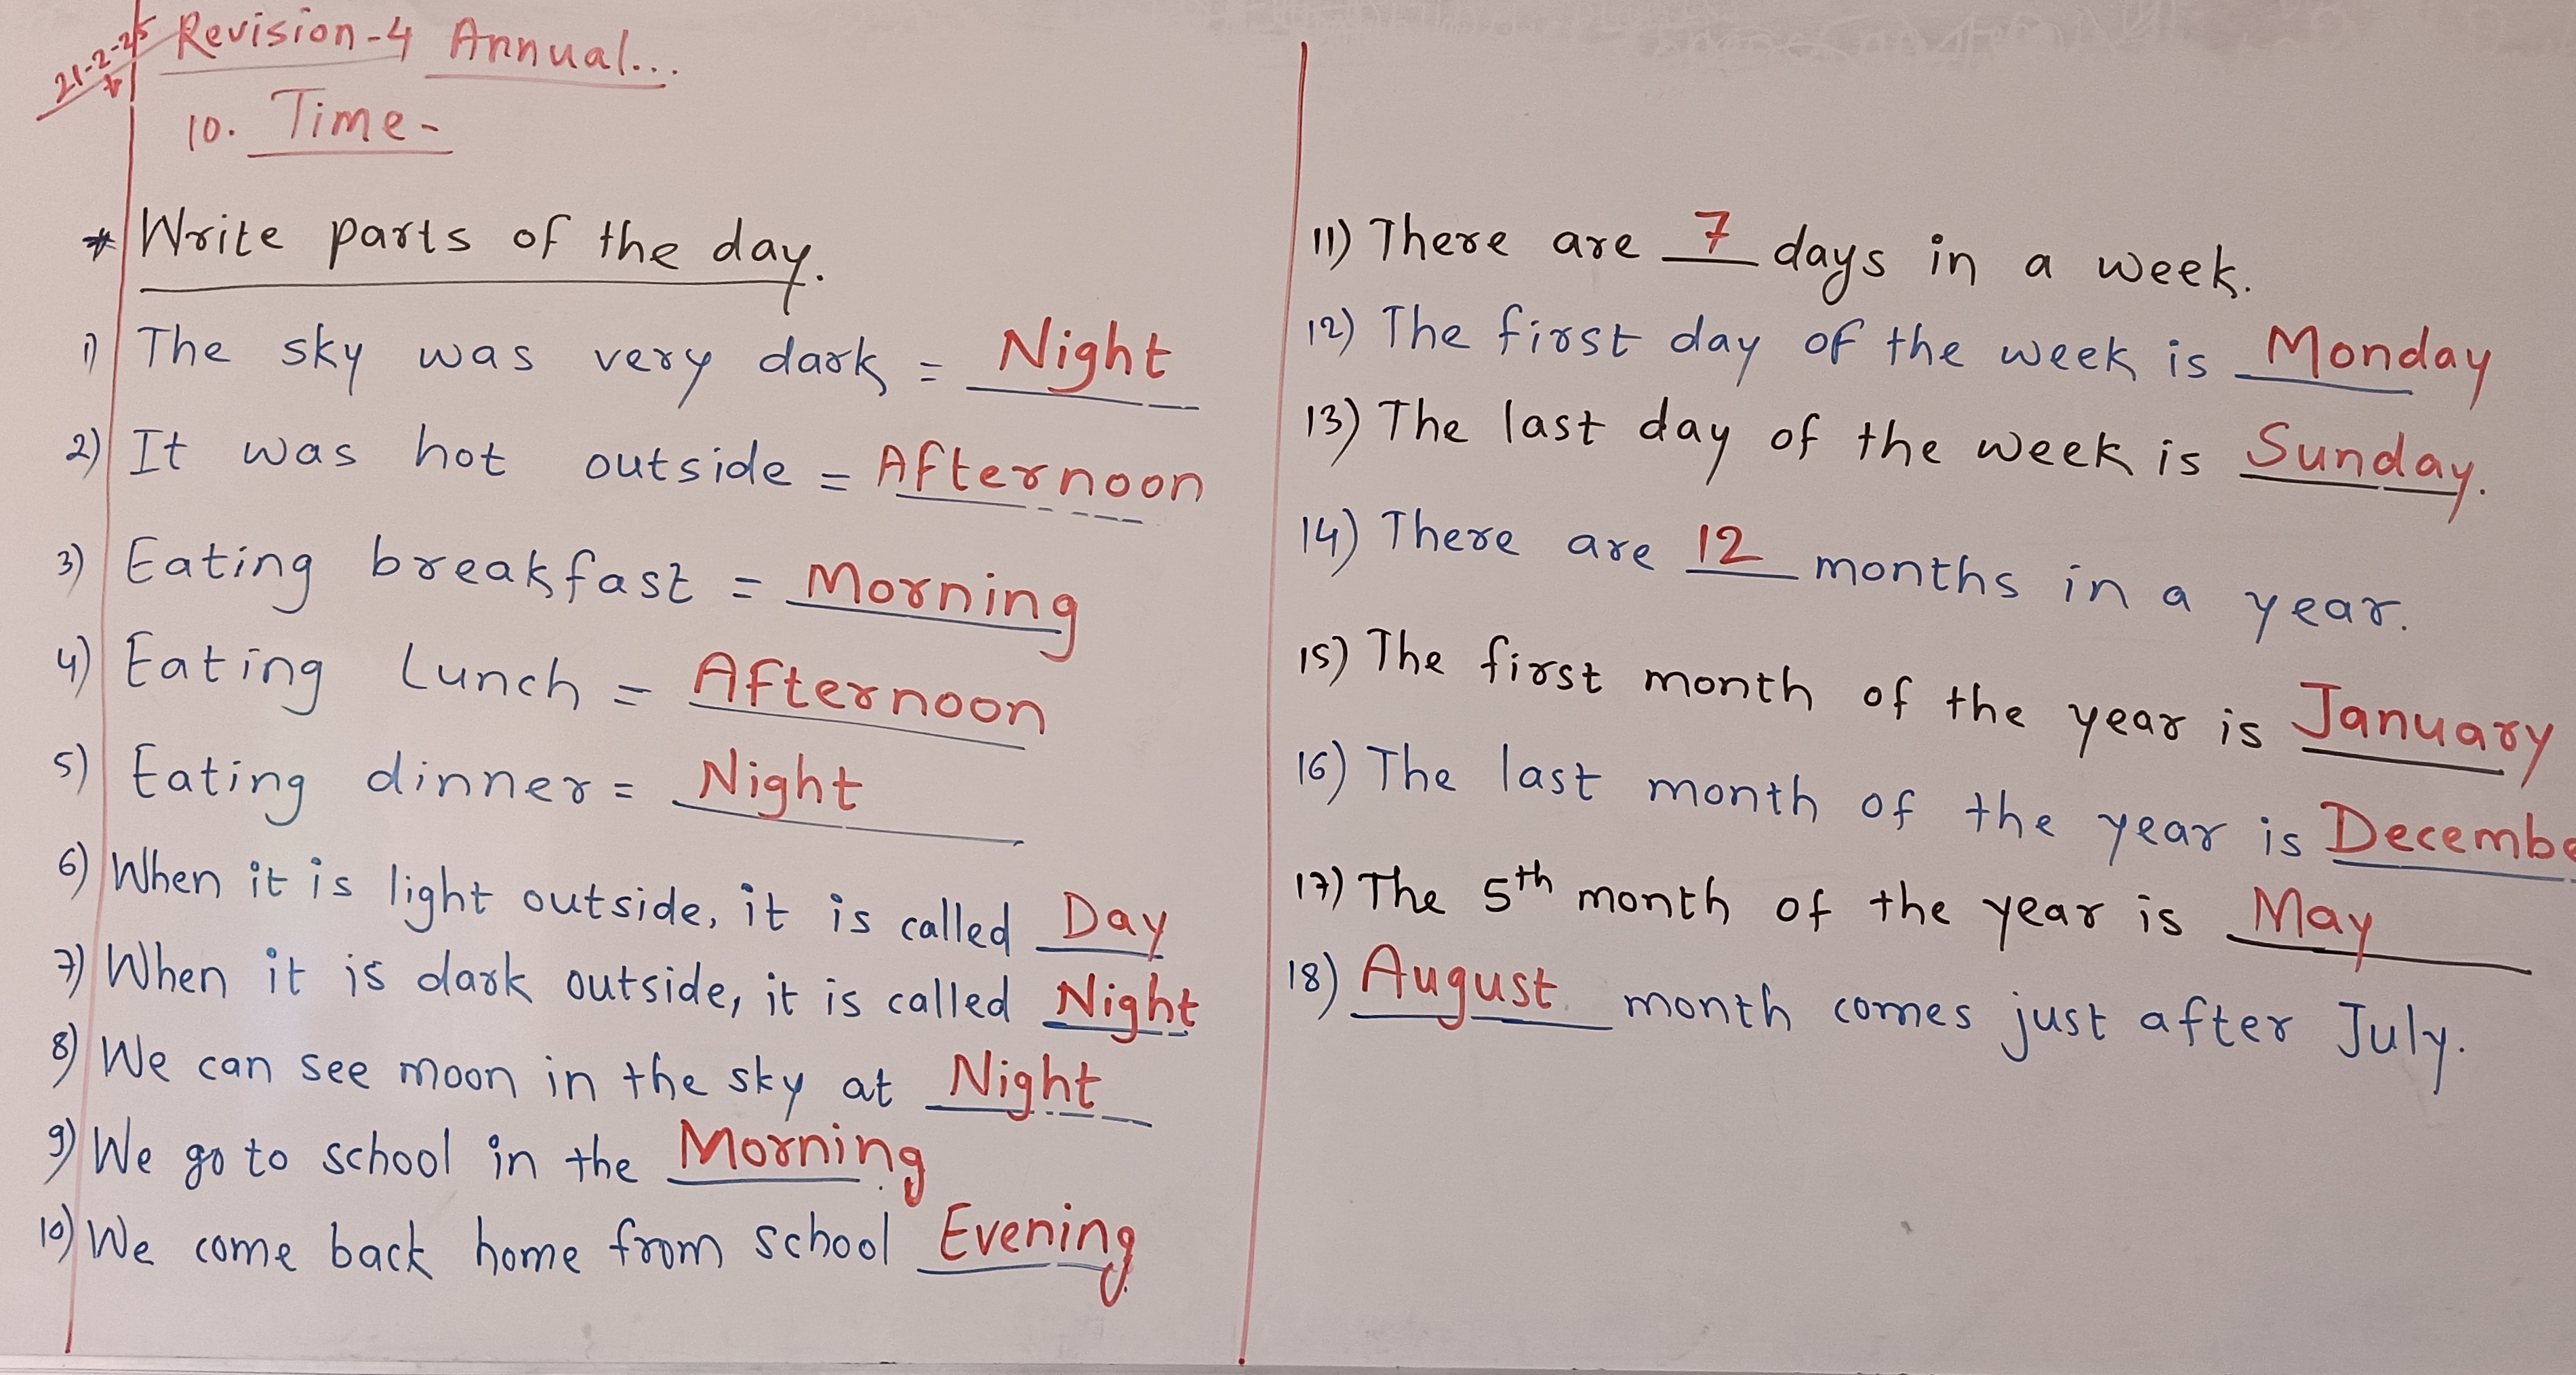 21-2-25
Revision-4 Annual...
10. Time-
* Write parts of the day.
1) The sky was very dark = Night
2) It was hot outside = Afternoon
3) Eating breakfast = Morning
4) Eating Lunch = Afternoon
5) Eating dinner = Night
6) When it is light outside, it is called Day
7) When it is dark outside, it is called Night
8) We can see moon in the sky at Night
9) We go to school in the Morning
10) We come back home from school Evening.
11) There are 7 days in a week.
12) The first day of the week is Monday
13) The last day of the week is Sunday.
14) There are 12 months in a year.
15) The first month of the year is January
16) The last month of the year is Decembe
17) The 5th month of the year is May
18) August month comes just after July.